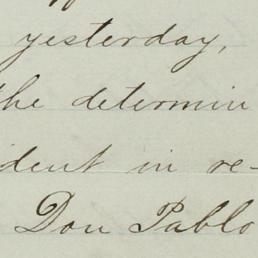 yesterday,
the determin
ident in re-
Don Pablo